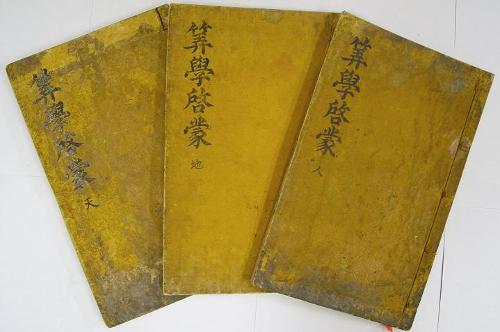 算學啓蒙
天
算學啓蒙
地
算學啓蒙
人